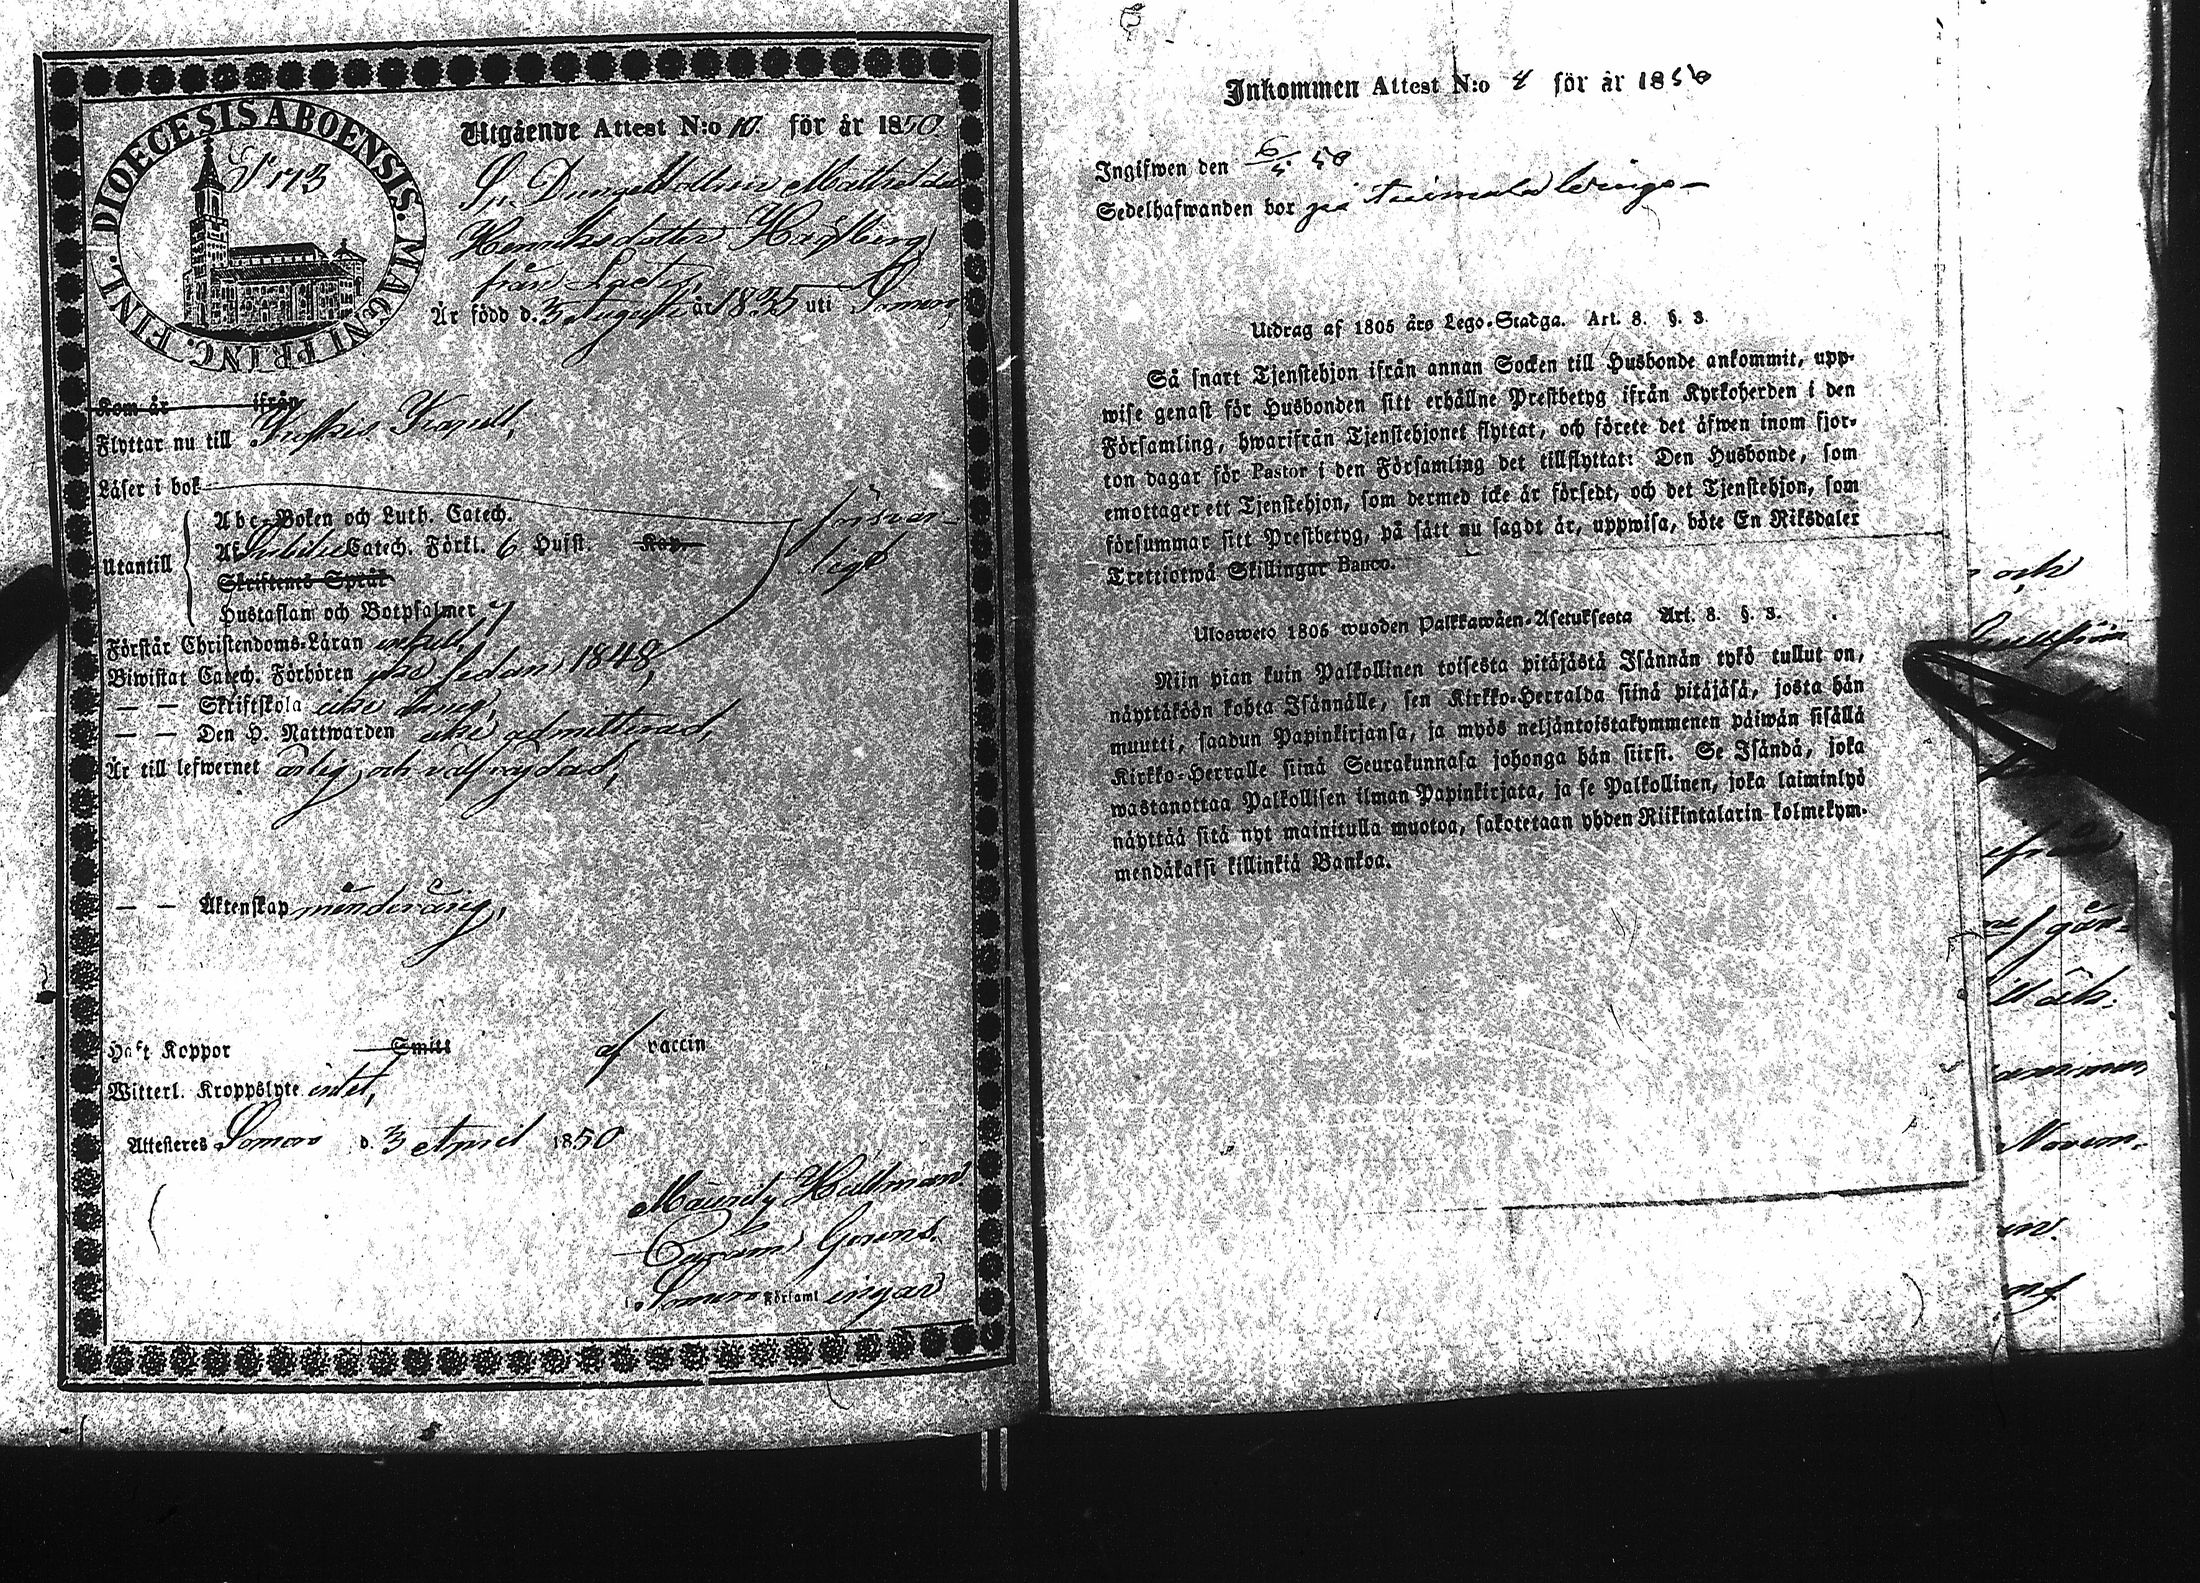 DIOECESIS ABOENSIS. MAGNI PRINC. FINL.
S 173
Utgående Attest N:o 10. för år 1850
Mathilda
Henriksdotter Högberg
från
Är född d. 3 Augusti år 1835 uti Somero
Kom år ifrån
Flyttar nu till Kapell,
Läser i bok försvar-
Utantill
Abc-Boken och Luth. Catech. ligt
Catech. Förkl. 6 Hufst.
Skriftenes Språk
Hustaflan och Botpsalmer 7
Förstår Christendoms-Läran enkelt,
Biwistat Catech. Förhören icke sedan 1848,
— — Skriftskola icke
— — Den H. Nattwarden icke admitterad,
Är till lefwernet ärlig och välfrejdad,
— — Äktenskap minderårig,
Haft Koppor Smitt af vaccin
Witterl. Kroppslyte intet,
Attesteres Somero d. 3 April 1850
Hellman
Somero Församl
Inkommen Attest N:o 4 för år 1850
Ingifwen den 6/5 50
Sedelhafwanden bor på
Utdrag af 1805 års Lego-Stadga. Art. 8. §. 3.
Så snart Tjenstehjon ifrån annan Socken till Husbonde ankommit, upp-
wise genast för Husbonden sitt erhållne Prestbetyg ifrån Kyrkoherden i den
Församling, hwarifrån Tjenstehjonet flyttat, och förete det äfwen inom fjor-
ton dagar för Pastor i den Församling det tillflyttat: Den Husbonde, som
emottager ett Tjenstehjon, som dermed icke är försedt, och det Tjenstehjon, som
försummar sitt Prestbetyg, på sätt nu sagdt är, uppwisa, böte En Riksdaler
Trettiotwå Skillingar Banco.
Ulosweto 1805 wuoden Palkkawäen-Asetuksesta Art. 8. §. 3.
Niin pian kuin Palkollinen toisesta pitäjästä Isännän tykö tullut on,
näyttäköön kohta Isännälle, sen Kirkko-Herralda siinä pitäjäsä, josta hän
muutti, saadun Papinkirjansa, ja myös neljäntoistakymmenen päiwän sisällä
Kirkko-Herralle siinä Seurakunnasa johonga hän siirsi. Se Isändä, joka
wastanottaa Palkollisen ilman Papinkirjata, ja se Palkollinen, joka laiminlyö
näyttää sitä nyt mainitulla muotoa, sakotetaan yhden Riikintalarin kolmekym-
mendäkaksi killinkiä Bankoa.